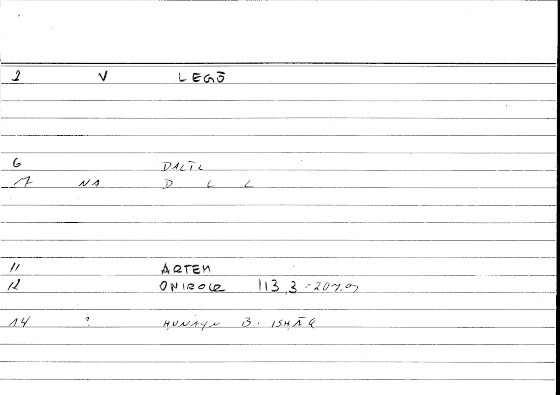 1 V LEGŌ
6 DALĪL
7 NA D L L
11 ARTEM
12 ONIROCR 113,3-207,9
14 ? HUNAYN B. ISHĀQ